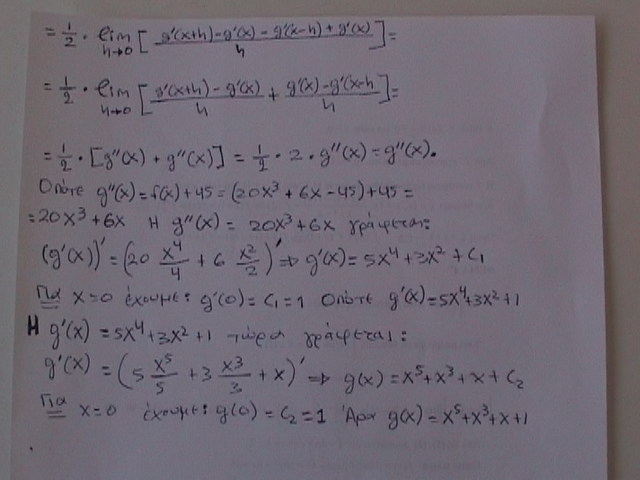 = 1/2 · lim h→0 [ (g'(x+h) - g'(x) - g'(x-h) + g'(x))/h ] =
= 1/2 · lim h→0 [ (g'(x+h) - g'(x))/h + (g'(x) - g'(x-h)/h ] =
= 1/2 · [g''(x) + g''(x)] = 1/2 · 2 · g''(x) = g''(x).
Οπότε g''(x) = f(x) + 45 = (20x³ + 6x - 45) + 45 =
= 20x³ + 6x Η g''(x) = 20x³ + 6x γράφεται:
(g'(x))' = (20 x⁴/4 + 6 x²/2)' ⇒ g'(x) = 5x⁴ + 3x² + c₁
Για x=0 έχουμε: g'(0) = c₁ = 1 Οπότε g'(x) = 5x⁴ + 3x² + 1
Η g'(x) = 5x⁴ + 3x² + 1 τώρα γράφεται:
g'(x) = (5 x⁵/5 + 3 x³/3 + x)' ⇒ g(x) = x⁵ + x³ + x + c₂
Για x=0 έχουμε: g(0) = c₂ = 1 Άρα g(x) = x⁵ + x³ + x + 1